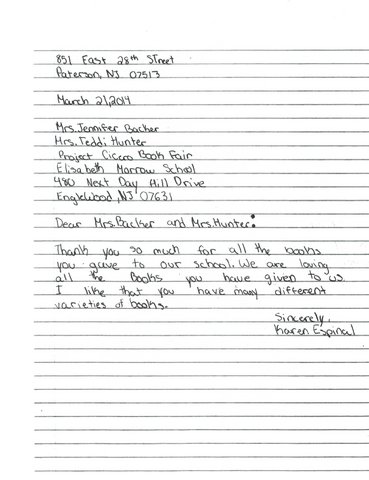 851 East 28th Street
Paterson, NJ 07513
March 21, 2014
Mrs. Jennifer Backer
Mrs. Teddi Hunter
Project Cicero Book Fair
Elisabeth Morrow School
480 Next Day Hill Drive
Englewood, NJ 07631
Dear Mrs. Backer and Mrs. Hunter:
Thank you so much for all the books
you gave to our school. We are loving
all the Books you have given to us.
I like that you have many different
varieties of books.
Sincerely,
Karen Espinal